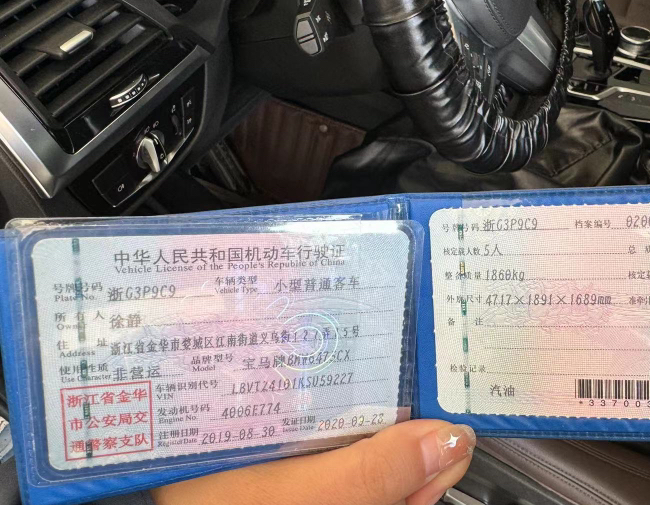 中华人民共和国机动车行驶证
Vehicle License of the People's Republic of China
号牌号码 浙G3P9C9 车辆类型 小型普通客车
Plate No. Vehicle Type
所有人 徐静
Owner
住址 浙江省金华市婺城区江南街道义乌街127弄75号
Address
使用性质 非营运 品牌型号 宝马牌BMW6475CX
Use Character Model
浙江省金华
市公安局交
通警察支队
车辆识别代号 LBVTZ4101KSU59227
VIN
发动机号码 4006E774
Engine No.
注册日期 2019-08-30 发证日期 2020-09-28
Register Date Issue Date
号牌号码 浙G3P9C9 档案编号 020
核定载人数 5人 总质
整备质量 1860kg 核定
外廓尺寸 4717×1891×1689mm 准牵
备注
检验记录
汽油
*337003